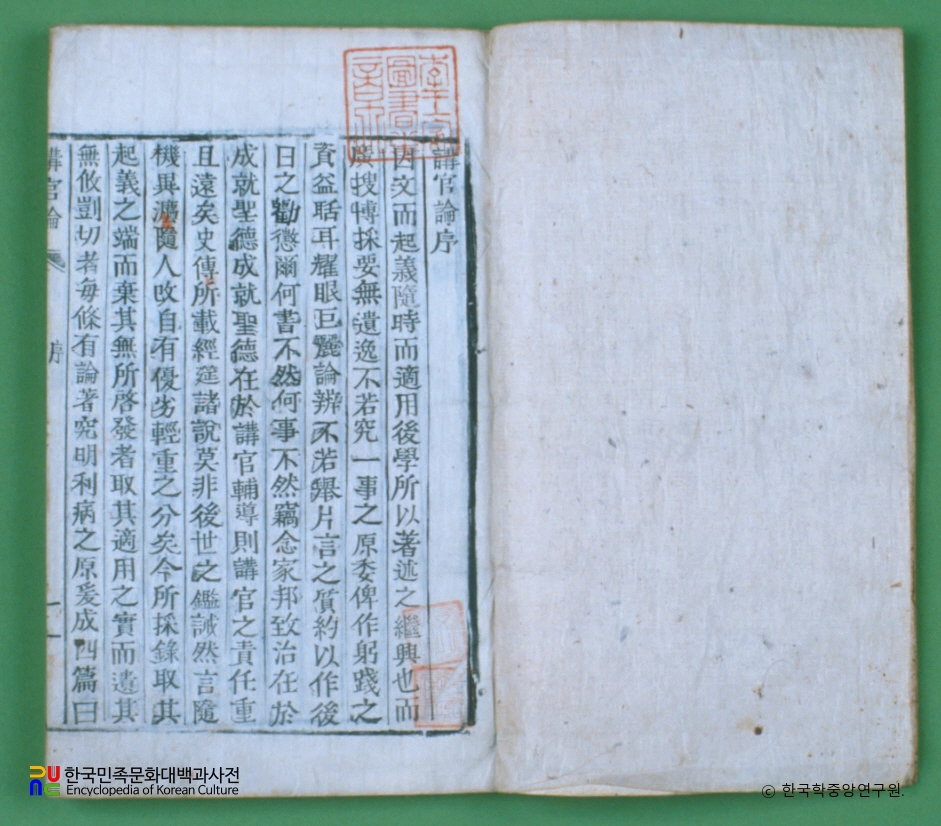 講官論序
因文而起義隨時而適用後學所以著述之繼興也而
廣搜博採要無遺逸不若究一事之原委俾作躬踐之
資益聒耳耀眼巨麗論辨不若舉片言之質約以作後
日之勸懲爾何書不然何事不然竊念家邦致治在於
成就聖德成就聖德在於講官輔導則講官之責任重
且遠矣史傳所載經筵諸說莫非後世之鑑誡然言隨
機異瀉隨人攺自有優劣輕重之分矣今所採錄取其
起義之端而棄其無所啓發者取其適用之實而遺其
無攸剴切者每條有論著究明利病之原爰成四篇曰
講官論 序 一
한국민족문화대백과사전
Encyclopedia of Korean Culture
© 한국학중앙연구원.